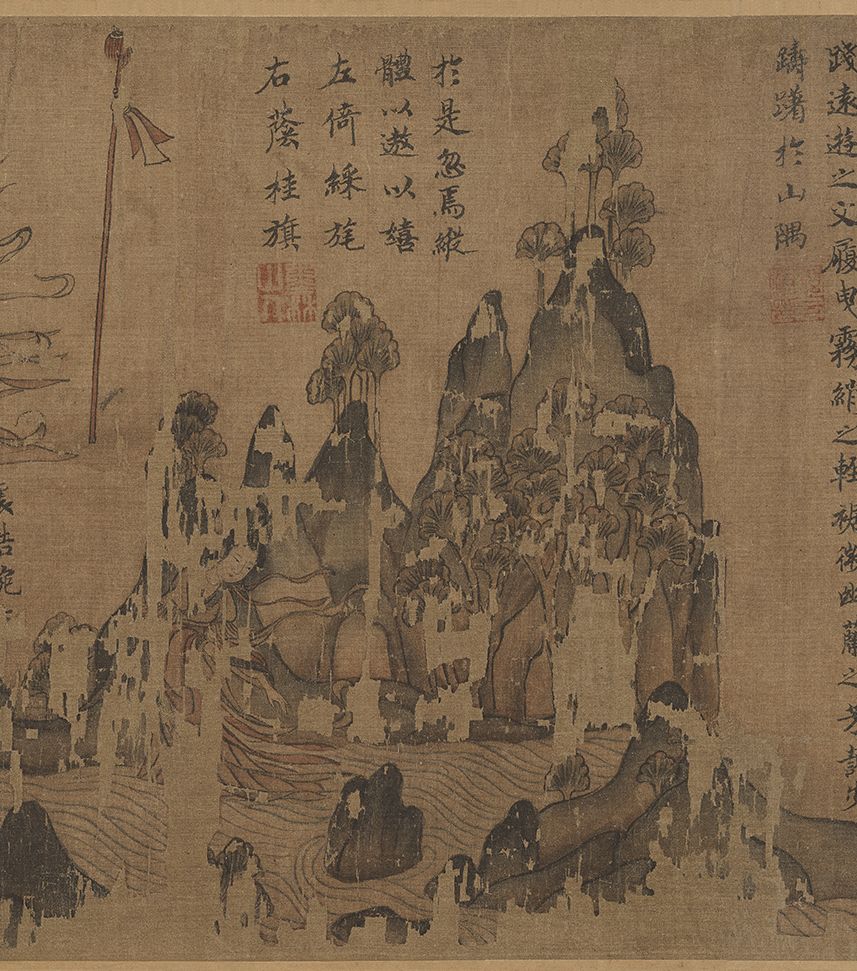 踐遠遊之文履曳霧綃之輕裾微幽蘭之芳藹
躊躇於山隅
於是忽焉縱
體以遨以嬉
左倚綵旄
右蔭桂旗